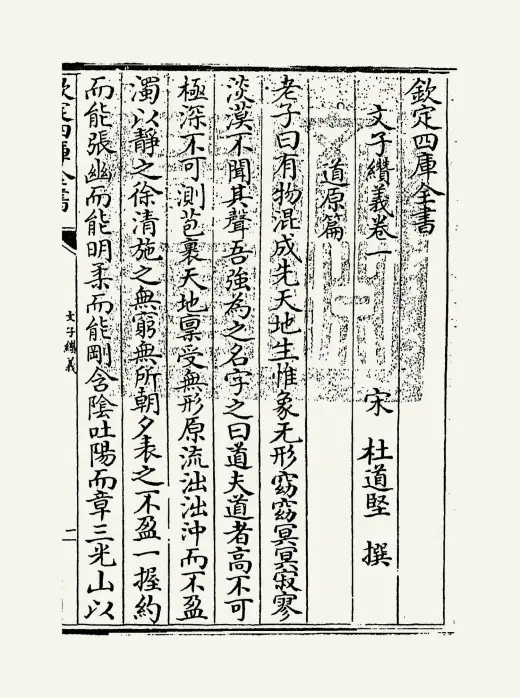 欽定四庫全書
文子纘義卷一
宋 杜道堅 撰
道原篇
老子曰有物混成先天地生惟象无形窈窈冥冥寂寥
淡漠不聞其聲吾強為之名字之曰道夫道者高不可
極深不可測苞裹天地禀受無形原流泏泏沖而不盈
濁以靜之徐清施之無窮無所朝夕表之不盈一握約
而能張幽而能明柔而能剛含陰吐陽而章三光山以
欽定四庫全書
文子纘義